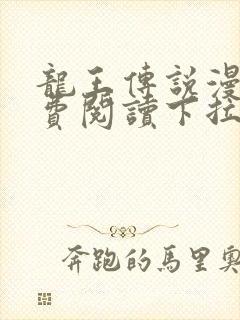 龍王傳説漫
費閱讀下拉
奔跑的馬里奧